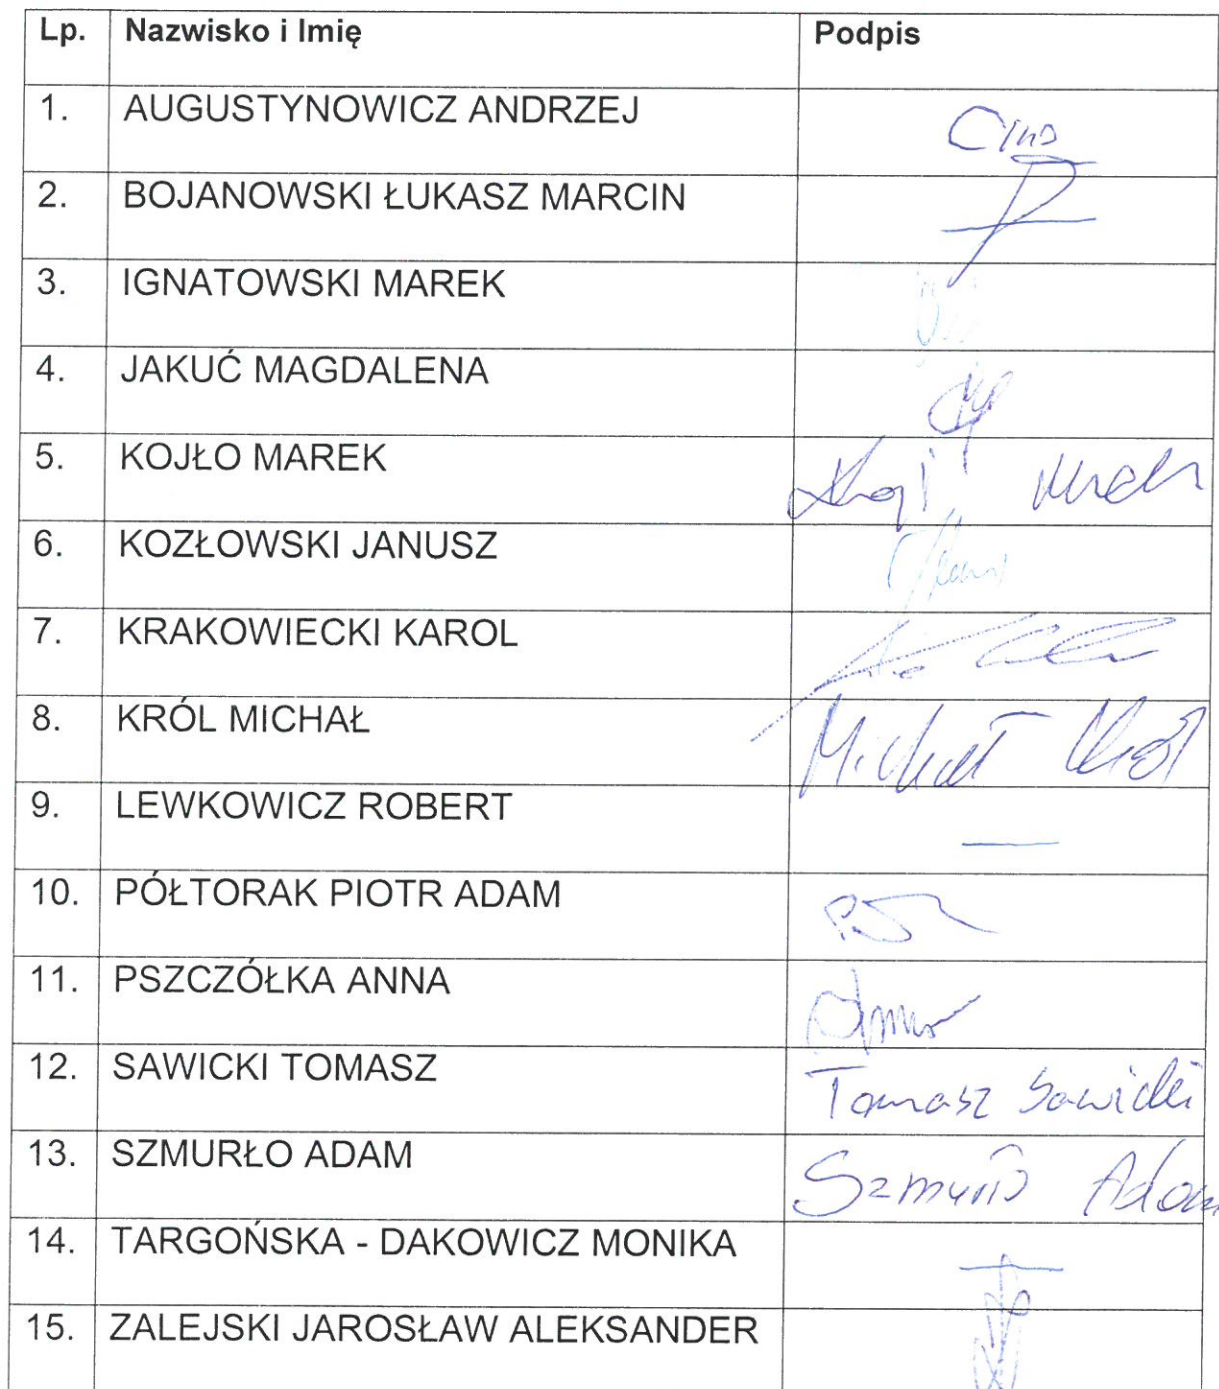 Lp. Nazwisko i Imię Podpis
1. AUGUSTYNOWICZ ANDRZEJ
2. BOJANOWSKI ŁUKASZ MARCIN
3. IGNATOWSKI MAREK
4. JAKUĆ MAGDALENA
5. KOJŁO MAREK
6. KOZŁOWSKI JANUSZ
7. KRAKOWIECKI KAROL
8. KRÓL MICHAŁ Michał Król
9. LEWKOWICZ ROBERT —
10. PÓŁTORAK PIOTR ADAM
11. PSZCZÓŁKA ANNA
12. SAWICKI TOMASZ Tomasz Sawicki
13. SZMURŁO ADAM Szmurło Adam
14. TARGOŃSKA - DAKOWICZ MONIKA
15. ZALEJSKI JAROSŁAW ALEKSANDER